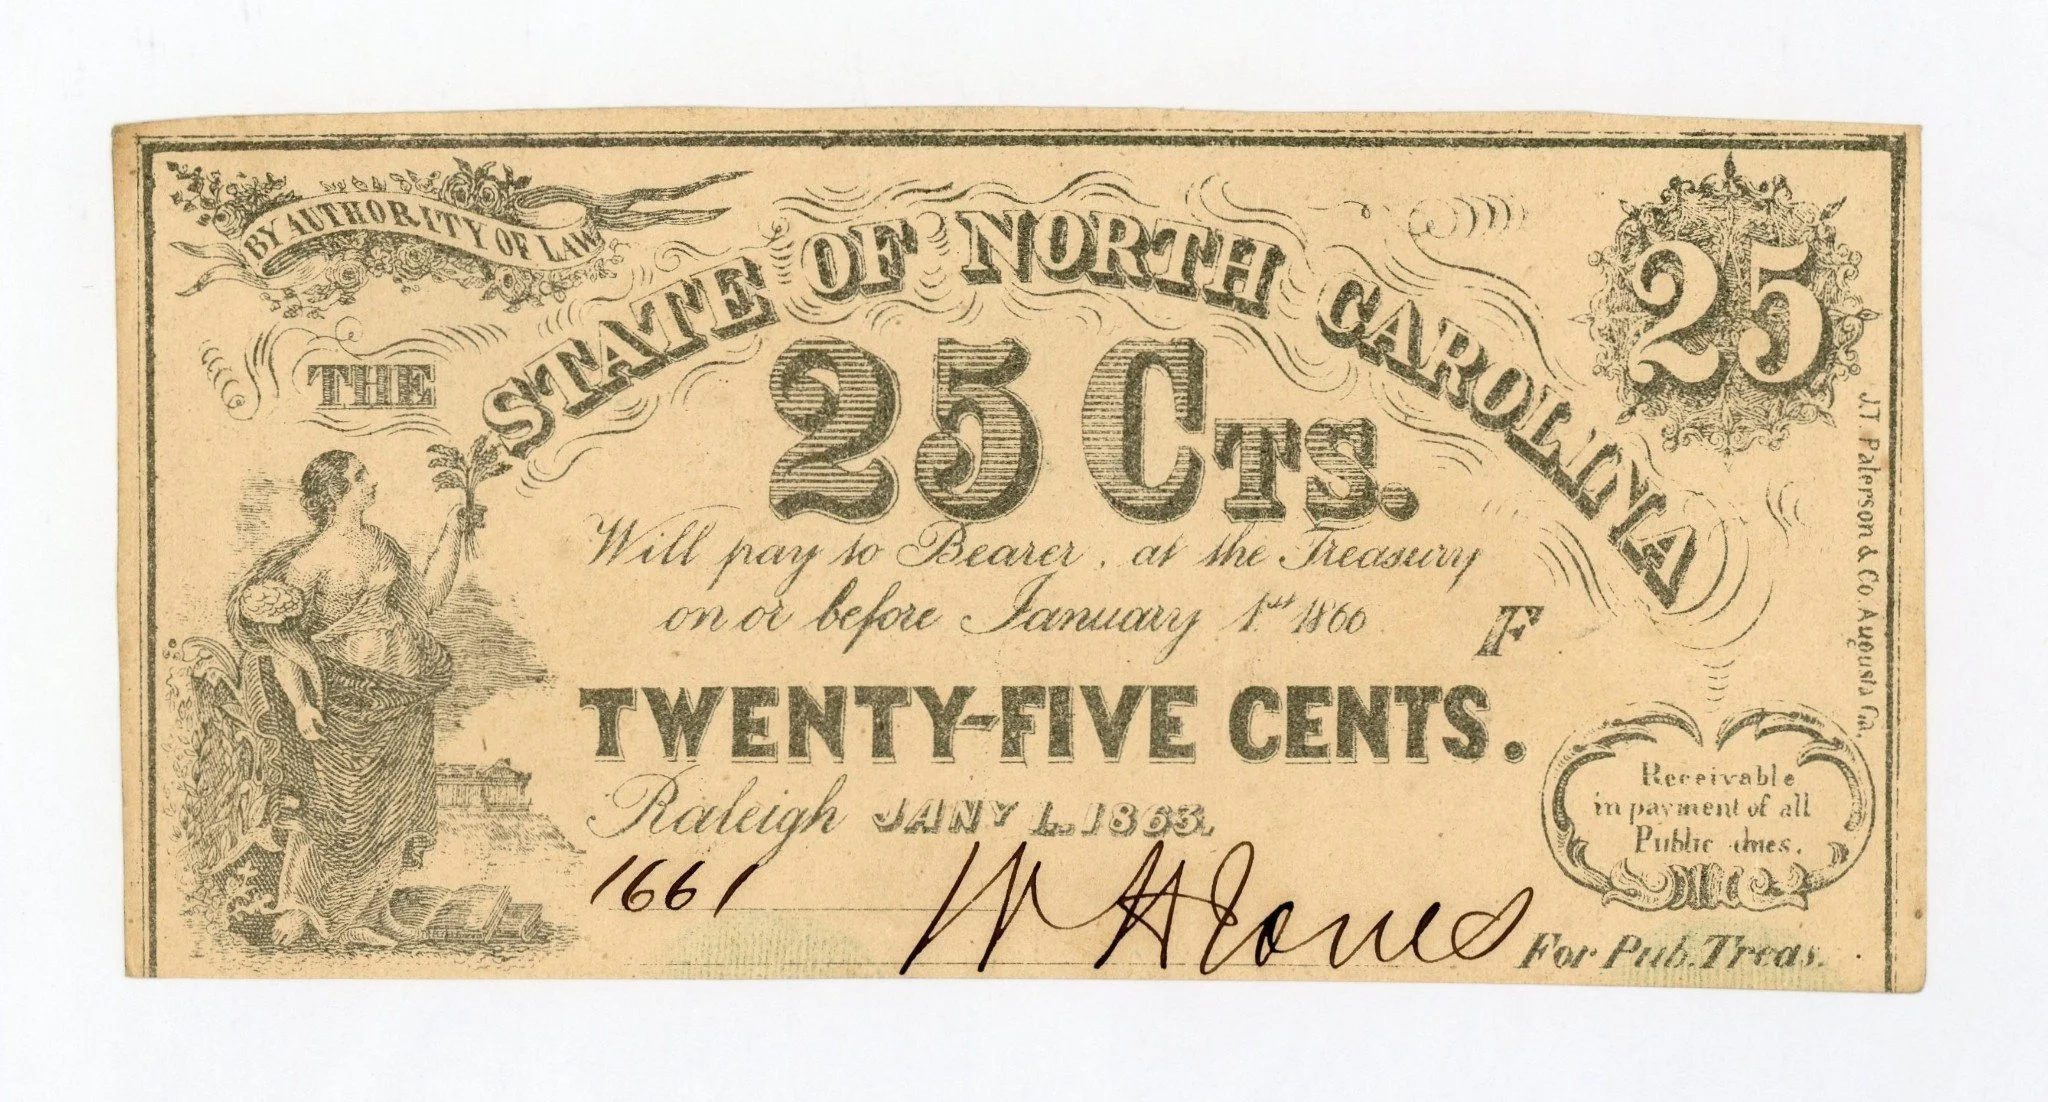 BY AUTHORITY OF LAW
THE
STATE OF NORTH CAROLINA
25
25 CTS.
Will pay to Bearer, at the Treasury
on or before January 1st 1866
F
TWENTY-FIVE CENTS.
Raleigh JANY 1. 1863.
1661
W H Jones
For Pub. Treas.
Receivable
in payment of all
Public dues.
J.T. Paterson & Co. Augusta Ga.